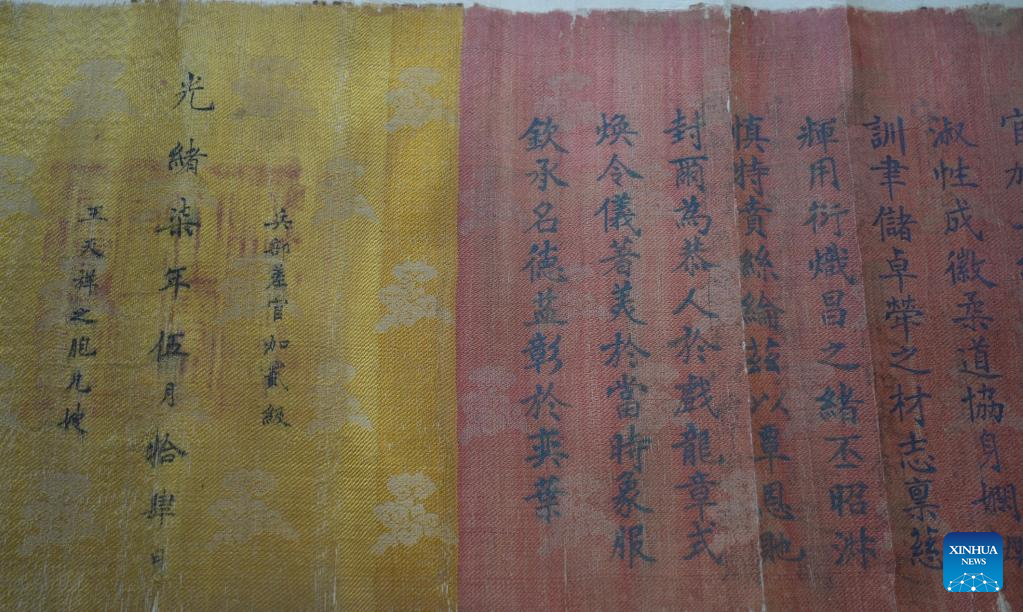 官加
淑性成徽柔道協身嫻
訓聿儲卓犖之材志稟慈
輝用衍熾昌之緒丕昭淑
慎特賁絲綸茲以覃恩貤
封爾為恭人於戲龍章式
煥令儀著美於當時象服
欽承名德益彰於奕葉
兵部差官加貳級
光緒柒年伍月拾肆日
王天祥之胞兄嫂
XINHUA
NEWS